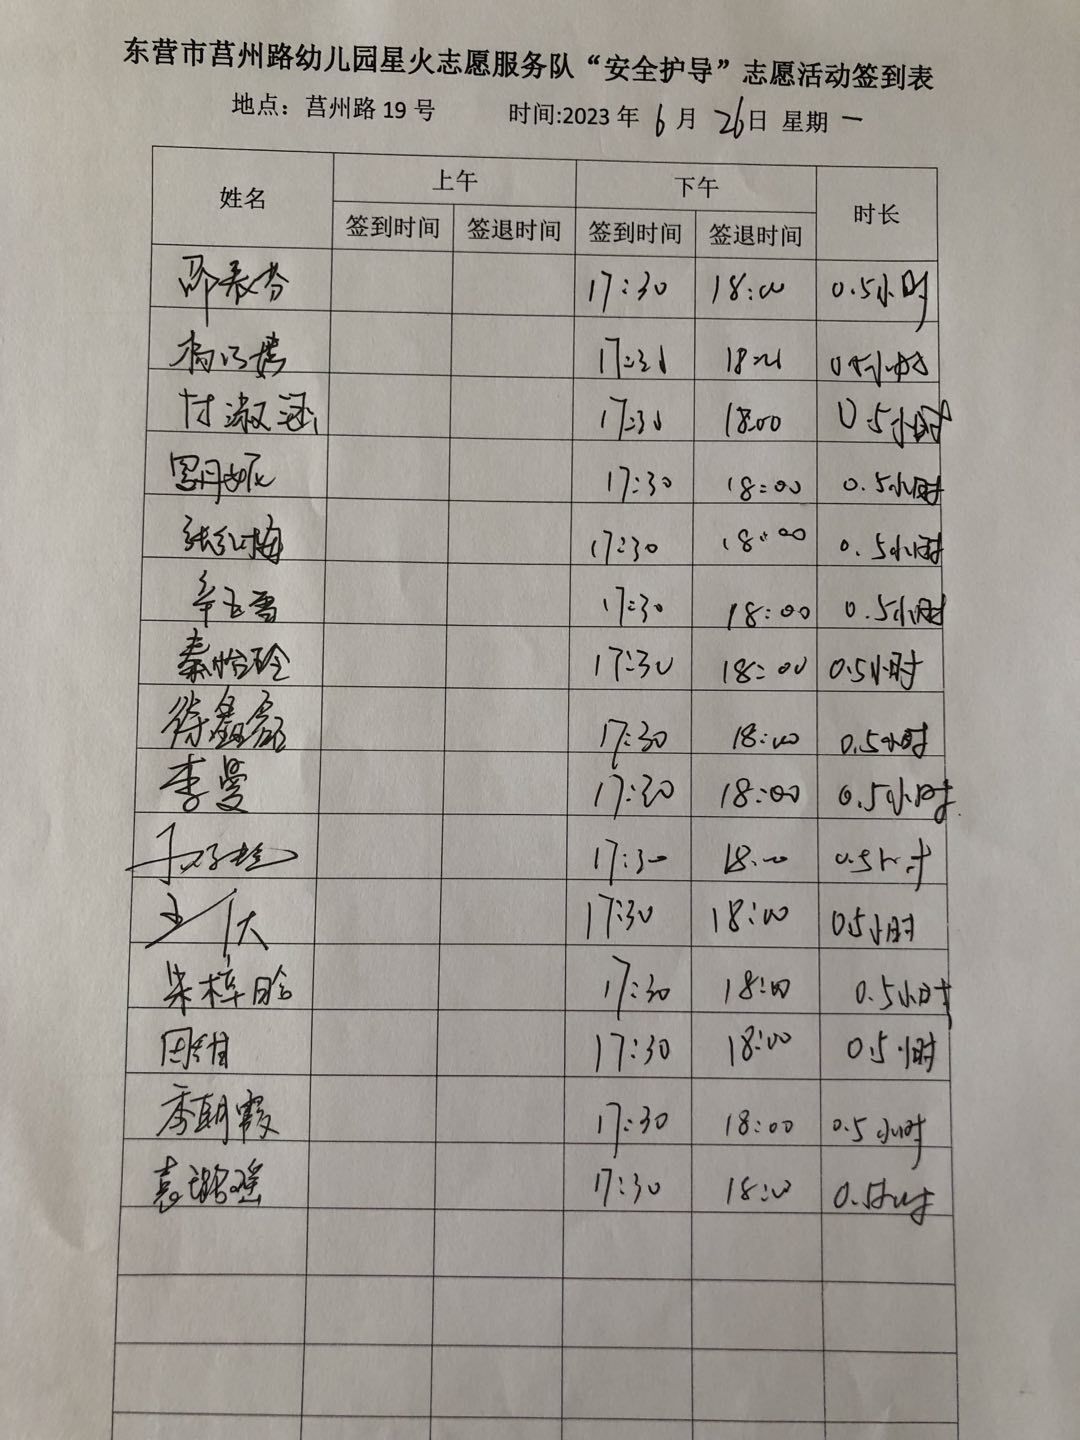 东营市莒州路幼儿园星火志愿服务队“安全护导”志愿活动签到表
地点：莒州路 19 号 时间:2023 年 6 月 26日 星期 一
姓名 上午 下午 时长
签到时间 签退时间 签到时间 签退时间
邵 17:30 18:00 0.5小时
杨 17:30 18:00 0.5小时
甘淑涵 17:30 18:00 0.5小时
罗月妮 17:30 18:00 0.5小时
张红梅 17:30 18:00 0.5小时
辛玉雪 17:30 18:00 0.5小时
秦怡玲 17:30 18:00 0.5小时
徐鑫磊 17:30 18:00 0.5小时
李曼 17:30 18:00 0.5小时
17:30 18:00 0.5小时
17:30 18:00 0.5小时
朱梓晗 17:30 18:00 0.5小时
田甜 17:30 18:00 0.5小时
季朝霞 17:30 18:00 0.5小时
袁璐瑶 17:30 18:00 0.5小时